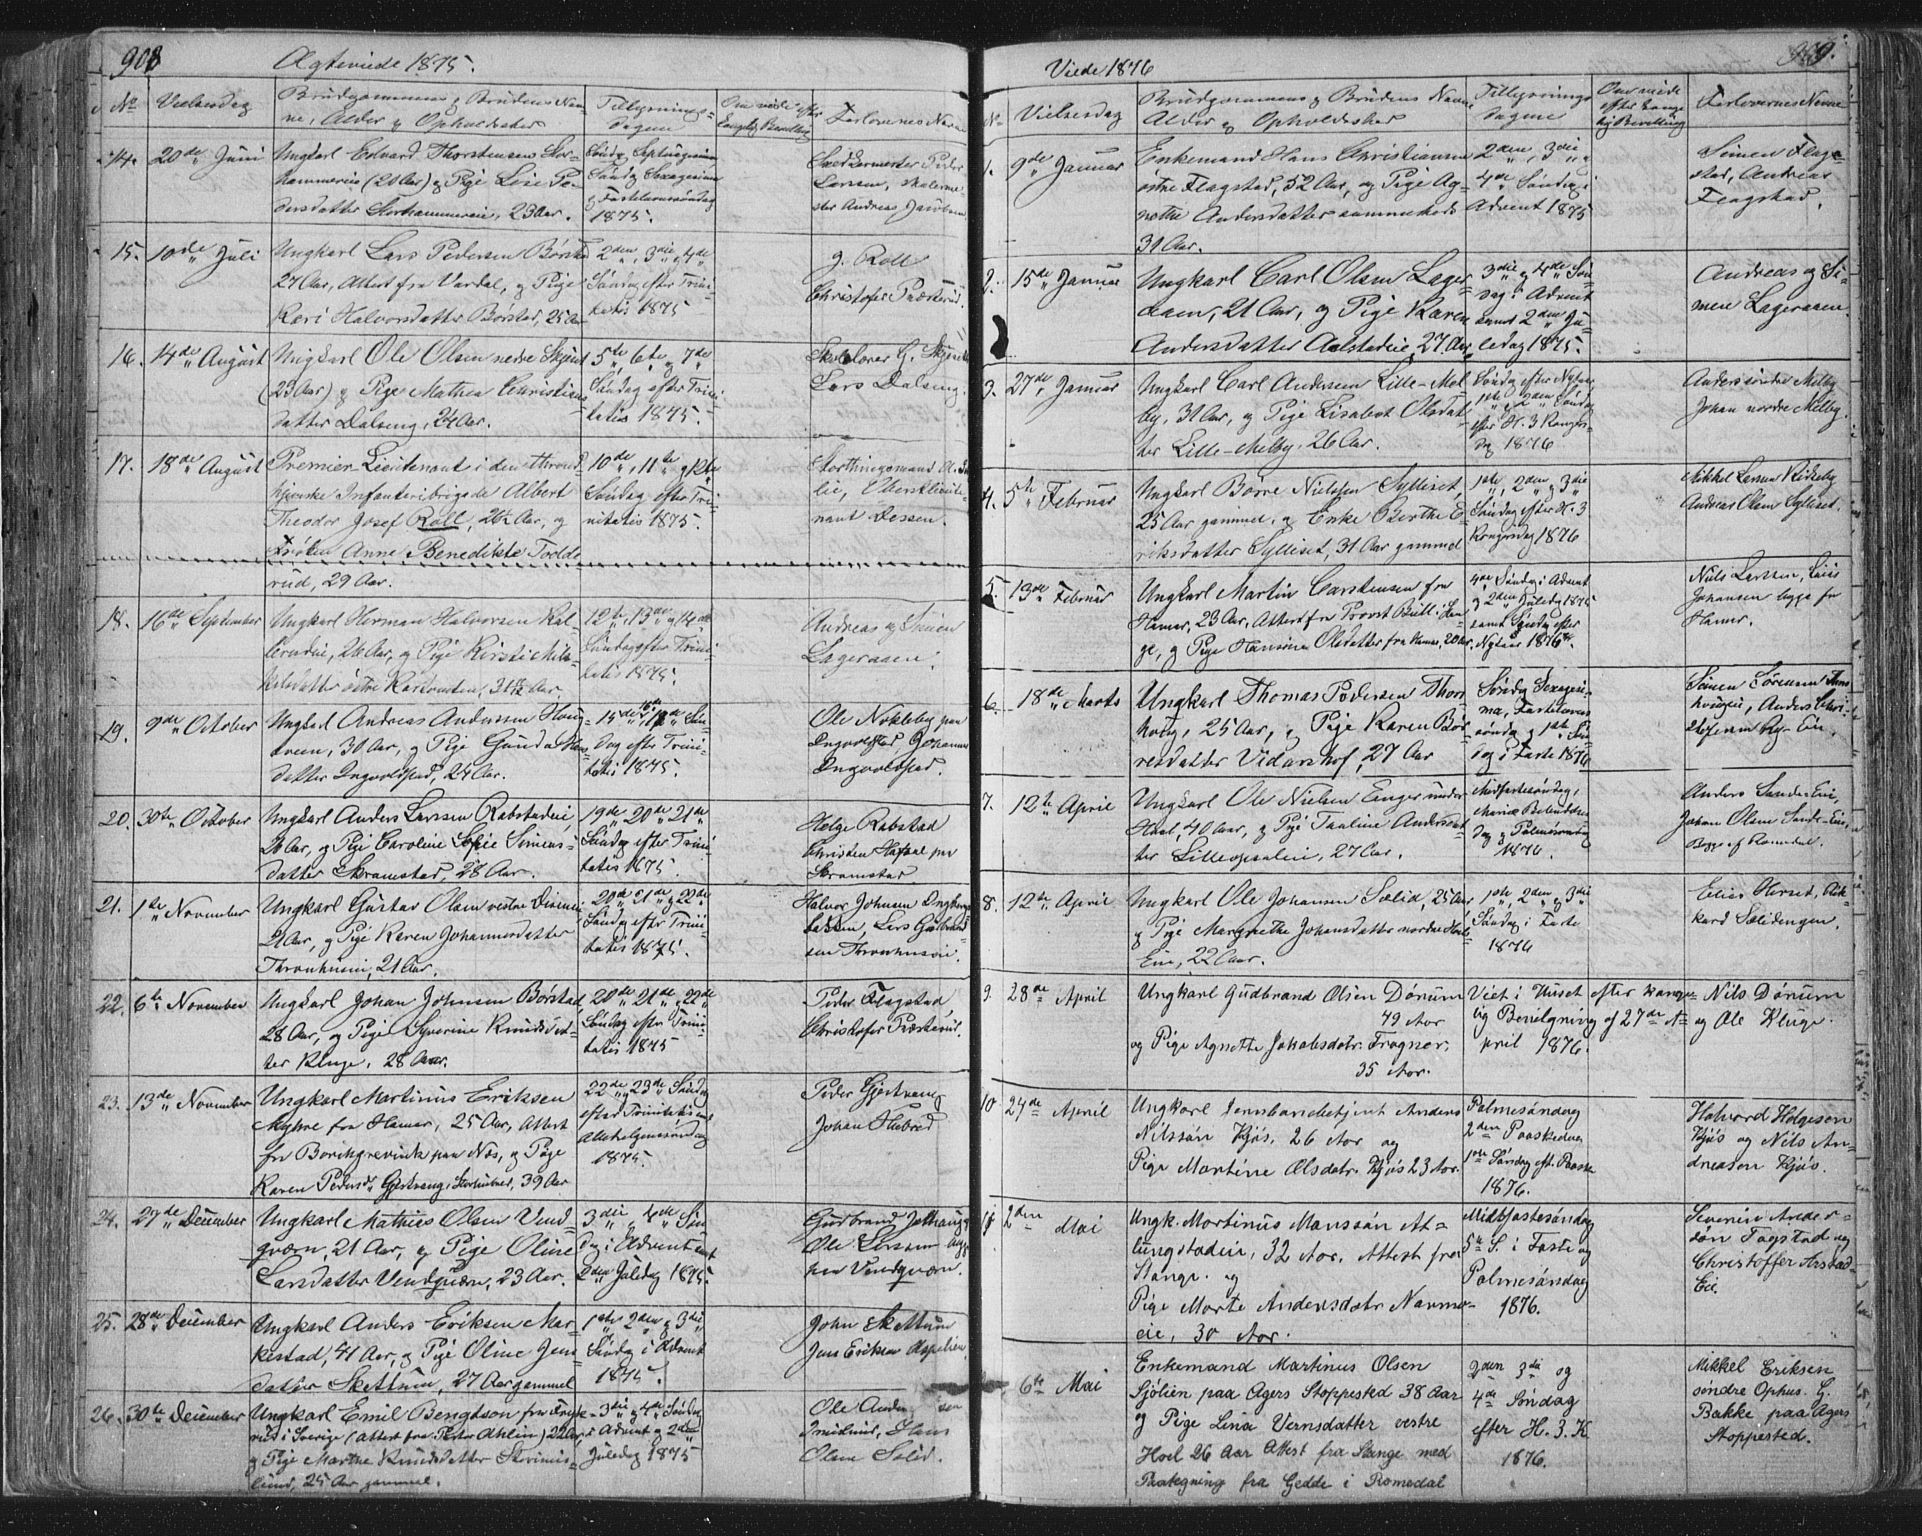 908
Ægteviede 1875.
No
Vielsesdag
Brudgommens og Brudens Nav-
ne, Alder og Opholdssted
Tillysnings-
dagene
Om viede efter
Kongelig Bevilling
Forlovernes Navne
14. 20de Juni
Ungkarl Edvard Thorstensen Stor-
hammereie (20 Aar) og Pige Lise Pe-
dersdatter Storhammereie, 23 Aar.
Søndag Septuagesima
Søndag Sexagesima
og Fastelavnssøndag
1875.
Larsen,
ster Andreas Jacobsen
15. 10de Juli
Ungkarl Lars Pedersen Børstad
27 Aar, Attest fra Vardal, og Pige
Kari Halvorsdatter Børstad, 25 Aar
2den, 3die og 4de
Søndag efter Trini-
tatis 1875
J. Roll
Christofer Præsterud.
16. 14de August
Ungkarl Ole Olsen nedre
(23 Aar) og Pige Mathea Christians-
datter Dalseng, 24 Aar.
5te, 6te og 7de
Søndag efter Trini-
tatis 1875.
Lars Dalseng.
17. 18de August
Premier-Lieutenant i den thrond-
hjemske Infanteribrigade Albert
Theodor Josef Roll, 26½ Aar, og
Frøken Anne Benedikte Todde-
rud, 29 Aar.
10de, 11te og 12te
Søndag efter Tri-
nitatis 1875.
Storthingsmand
lie, Oberstlieute-
nant Dessen.
18. 16de September
Ungkarl Herman Halvorsen
26 Aar, og Pige Kirsti
østre
12te, 13de og 14de
Søndag efter Trini-
tatis 1875.
Andreas og Simen
Lageraaen.
19. 9de October
Ungkarl Andreas Andersen Haug-
tveen, 30 Aar, og Pige Gunda
datter Ingvoldstad, 24 Aar.
15de 16de og 17de Søn-
dag efter Trini-
tatis 1875.
Ole Nokleby paa
Ingvoldstad, Johannes
Ingvoldstad.
20. 30te October
Ungkarl Anders Larsen Rabstadeie,
26 Aar, og Pige Caroline Sofie Simens-
datter Skramstad, 28 Aar.
19de 20de 21de
Søndag efter Trini-
tatis 1875.
Helge Rabstad
Christen paa
Skramstad
21. 1te November
Ungkarl Gustav Olsen vestre
21 Aar, og Pige Karen Johannesdatter
21 Aar.
20de 21de og 22de
Søndag efter Trini-
tatis 1875.
Halvor Johnsen
Lars Gulbrand-
22. 6te November
Ungkarl Johan Johnsen Børstad,
28 Aar, og Pige Syverine Knudsdat-
ter Kluge, 28 Aar.
20de 21de og 22de
Søndag efter Trini-
tatis 1875
Peder Flagstad,
Christofer Præsterud.
23. 13de November
Ungkarl Martinus Eriksen
Myhre fra Hamar, 25 Aar, Attest
fra Borchgrevink paa Næs, og Pige
Karen Pedersdr Gjetvang, 39 Aar
22de og 23de Søndag
efter Trinitatis samt
Allehelgenssøndag
1875.
Peder Gjetvang
Johan Hubred
24. 27de December
Ungkarl Mathias Olsen Vend-
qværn, 21 Aar, og Pige Oline
Larsdatter Vendqværn, 23 Aar.
3die og 4de Søn-
dag i Advent samt
2den Juledag 1875.
Gudbrand
Ole Larsen
paa Vendqværn.
25. 28de December
Ungkarl Anders Eriksen Mar-
kestad, 41 Aar, og Pige Oline Jens-
datter Skettum, 27 Aar gammel
1ste 2den og 3die
Søndag i Advent
1875.
John Skettum
Jens Eriksen
26. 30te December
Ungkarl Emil Bengtson fra
i Sverige (Attest fra Pastor Ahlin) 22 Aar,
og Pige Marthe Knudsdatter
lund, 25 Aar gammel.
3die og 4de Søndag
i Advent og 2den
Juledag 1875
Ole Ander sen
Hans
Olsen Selid.
Viede 1876
909.
No
Vielsesdag
Brudgommens og Brudens Navne
Alder og Opholdssted
Tillysnings-
dagene
Om viede
efter Konge-
lig Bevilling
Forlovernes Navne
1. 9de Januar
Enkemand Hans Christiansen
østre Flagstad, 52 Aar, og Pige Ag-
nethe Andersdatter sammesteds
31 Aar.
2den, 3die og
4de Søndag i
Advent 1875
Simen Flag-
stad, Andreas
Flagstad.
2. 15de Januar
Ungkarl Carl Olsen Lager-
aaen, 21 Aar, og Pige Karen
Andersdatter Aalstadeie, 27 Aar
3die og 4de Søn-
dag i Advent
samt 2den Ju-
ledag 1875.
Andreas og Si-
men Lageraaen.
3. 27de Januar
Ungkarl Carl Andersen Lille-Mel-
by, 31 Aar, og Pige Lisabet Olsdat-
ter Lille-Melby 26 Aar.
Søndag efter Nytaar
1ste og 2den Søndag
efter H. 3 Konger
Dag 1876
Anders søndre Melby
Johan nordre Melby.
4. 5te Februar
Ungkarl Børre Nilssen Sylliset,
25 Aar gammel, og Enke Berthe E-
riksdatter Sylliset, 31 Aar gammel
1ste, 2den og 3die
Søndag efter H. 3
Kongersdag 1876
Mikkel Larsen
Andreas Olsen Sylliset.
5. 13de Februar
Ungkarl Martin Carstensen fra
Hamar, 23 Aar, Attest fra Provst
og Pige Olsdatter fra Hamar, 20 Aar
4de Søndag i Advent
og 2den Juledag 1875
samt Søndag efter
Nytaar 1876.
Niels Larssen, Lars
Johansen begge fra
Hamar.
6. 18de Marts
Ungkarl Thomas Pedersen Thor-
houg, 25 Aar, og Pige Karen Bør-
resdatter Vidarshof, 27 Aar
Søndag Sexagesi-
ma, Fastelavns-
søndag og 1ste Søn-
dag i Faste 1876
Simen Sørensen
Anders Chri-
stofersen Ry-Eie.
7. 12te April
Ungkarl Ole Nielsen Enger under
Hoel, 40 Aar, og Pige Pauline Andersdat-
ter Lilleopsaleie, 27 Aar.
Midfastesøndag,
Mariæ Bebudelses
Dag og Palmesøndag
1876.
Anders Sande-Eie,
Johan Olsen Sande-Eie,
Begge af Romedal.
8. 12te April
Ungkarl Ole Johansen Sælid, 25 Aar
og Pige Margrethe Johansdatter nordre Hoel-
Eie, 22 Aar.
1ste, 2den og 3die
Søndag i Faste
1876
Elias Hersed, Rik-
kard Sælidengen.
9. 28de April
Ungkarl Gudbrand Olsen Dønum
49 Aar
og Pige Agnette Jakobsdatr. Frogner,
35 Aar.
Viet i Huset efter konge-
lig Bevilgning af 27de A-
pril 1876.
Nils Dønum
og Ole Kluge.
10 24de April
Ungkarl Jernbanebetjent Anders
Nilssøn Kjøs, 26 Aar og
Pige Martine Olsdatr. Kjøs 23 Aar.
Palmesøndag
2den Paaskedag
1ste Søndag eft. Paaske
1876.
Halvord Holgeson
Kjøs og Nils An-
dreasøn Kjøs.
11 2den Mai
Ungk. Martinus Monssøn At-
lungstadeie, 32 Aar. Attest fra
Stange. og
Pige Marte Andersdatr Narmo-
eie, 30 Aar.
Midtfastesøndag
5te S. i Faste og
Palmesøndag
1876.
Severin Ander-
søn Fagstad og
Christoffer Arstad-
Eie.
6te Mai
Enkemand Martinus Olsen
Sjølien paa Agers Stoppested 38 Aar
og Pige Lina Vernsdatter vestre
Hoel 26 Aar Attest fra Stange med
Paategning fra Gedde i Romedal
2den 3die og
4de Søndag
efter H. 3. K
1876.
Mikkel Eriksen
søndre Ophus. G.
Bakke paa Agers
Stoppested.